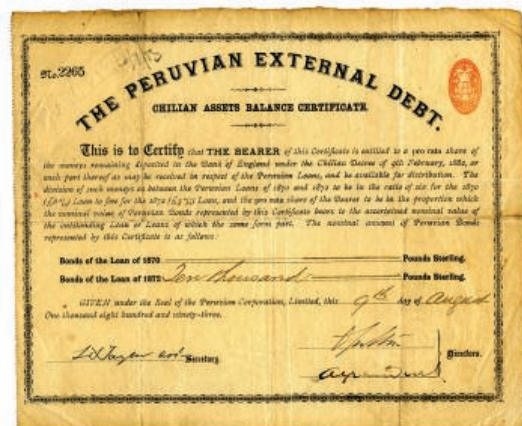 No. 2265
THE PERUVIAN EXTERNAL DEBT.
CHILIAN ASSETS BALANCE CERTIFICATE.
This is to Certify that THE BEARER of this Certificate is entitled to a pro rata share of
the moneys remaining deposited in the Bank of England under the Chilian Decree of 9th February, 1882, or
such part thereof as may be received in respect of the Peruvian Loans, and be available for distribution. The
division of such moneys as between the Peruvian Loans of 1870 and 1872 to be in the ratio of six for the 1870
Loan to five for the 1872 Loan, and the pro rata share of the Bearer to be in the proportion which
the nominal value of Peruvian Bonds represented by this Certificate bears to the ascertained nominal value of
the outstanding Loan or Loans of which the same form part. The nominal amount of Peruvian Bonds
represented by this Certificate is as follows:
Bonds of the Loan of 1870 Pounds Sterling.
Bonds of the Loan of 1872 Ten thousand Pounds Sterling.
GIVEN under the Seal of the Peruvian Corporation, Limited, this 9th day of August
One thousand eight hundred and ninety-three.
Secretary.
Directors.